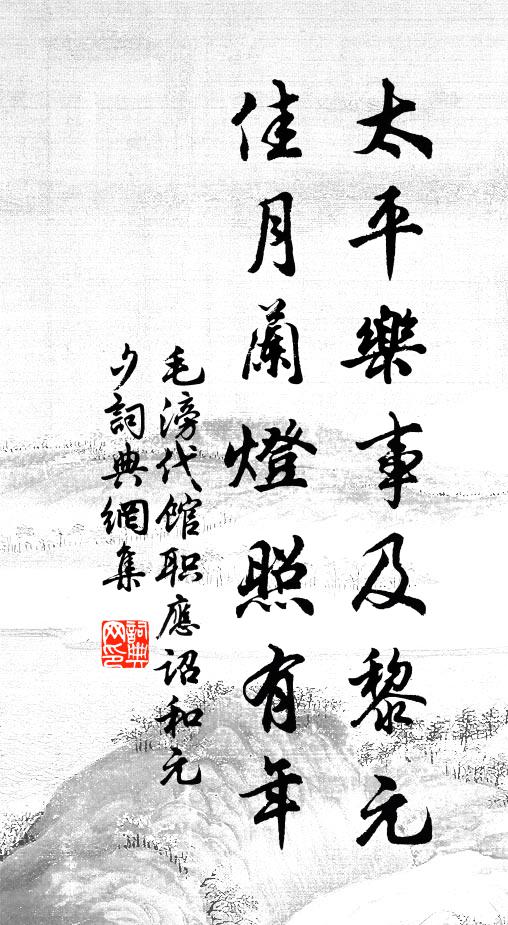 太平樂事及黎元
佳月蘭燈照有年
毛滂代馆职應詔和元
夕詞典網集
詞典
网印